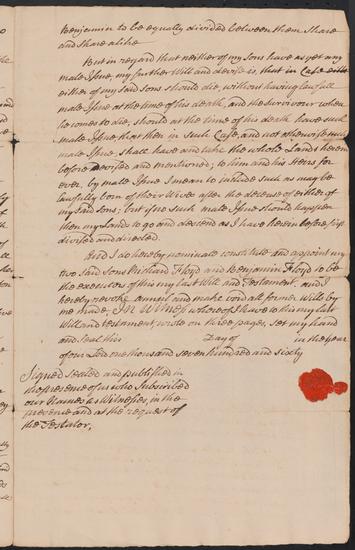 Benjamin to be equally divided between them Share
and share alike
But in regard that neither of my sons have as yet any
male Issue, my further Will and devise is, that in Case
either of my said sons should die, without having lawfull
male Issue at the time of his death, and the survivour when
he comes to die, should at the time of his death have such
male Issue that then in such Case, and not otherwise such
male Issue, shall have and take the whole Lands herein
before devised and mentioned; to him and his Heirs for
ever, by male Issue I mean to include such as may be
lawfully born of their Wives after the decease of either of
my said sons; but if no such male Issue should happen
then my Lands to go and descend as I have herein before first
divised and directed.
And I do hereby nominate constitute and appoint my
two said Sons Richard Floyd and Benjamin Floyd to be
the executors of this my last Will and Testament, and I
hereby revoke annull and make void all former Wills by
me made; IN WITNESS whereof I have to this my last
Will and testament, wrote on three pages, set my hand
and seal this Day of in the year
of our Lord one thousand seven hundred and sixty
Signed sealed and published in
the presence of us who Subscribed
our Names as Witnesses, in the
presence and at the request of
the Testator,